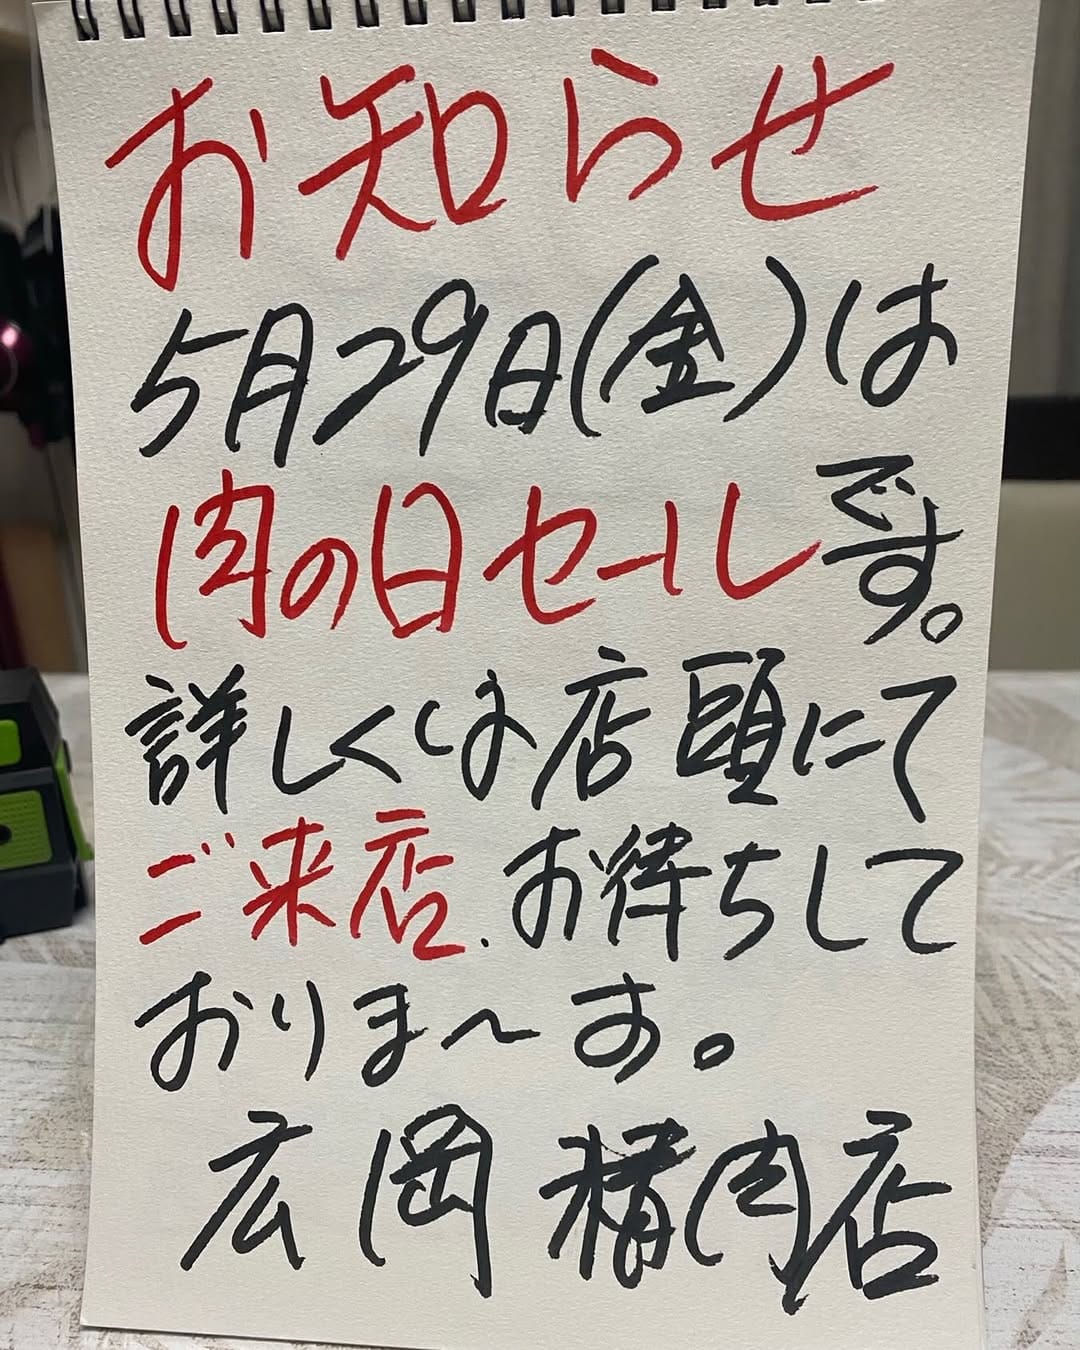 お知らせ
5月29日(金)は
肉の日セールです。
詳しくは店頭にて
ご来店、お待ちして
おりま〜す。
広岡精肉店